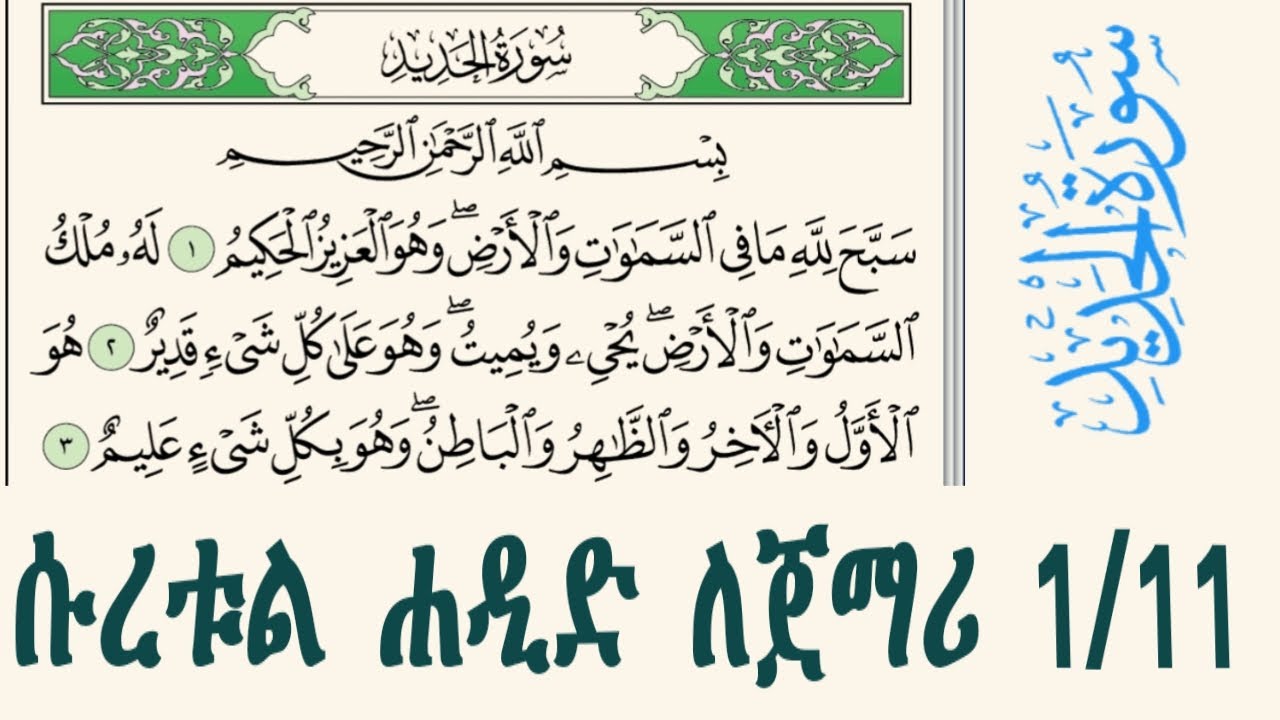 سُورَةُ الْحَدِيدِ
بِسْمِ ٱللَّهِ ٱلرَّحْمَٰنِ ٱلرَّحِيمِ
سَبَّحَ لِلَّهِ مَا فِي ٱلسَّمَٰوَٰتِ وَٱلْأَرْضِۖ وَهُوَ ٱلْعَزِيزُ ٱلْحَكِيمُ ١ لَهُۥ مُلْكُ
ٱلسَّمَٰوَٰتِ وَٱلْأَرْضِۖ يُحْيِۦ وَيُمِيتُۖ وَهُوَ عَلَىٰ كُلِّ شَيْءٍ قَدِيرٌ ٢ هُوَ
ٱلْأَوَّلُ وَٱلْءَاخِرُ وَٱلظَّٰهِرُ وَٱلْبَاطِنُۖ وَهُوَ بِكُلِّ شَيْءٍ عَلِيمٌ ٣
سُورَةُ الْحَدِيدِ
ሱረቱል ሐዲድ ለጀማሪ 1/11